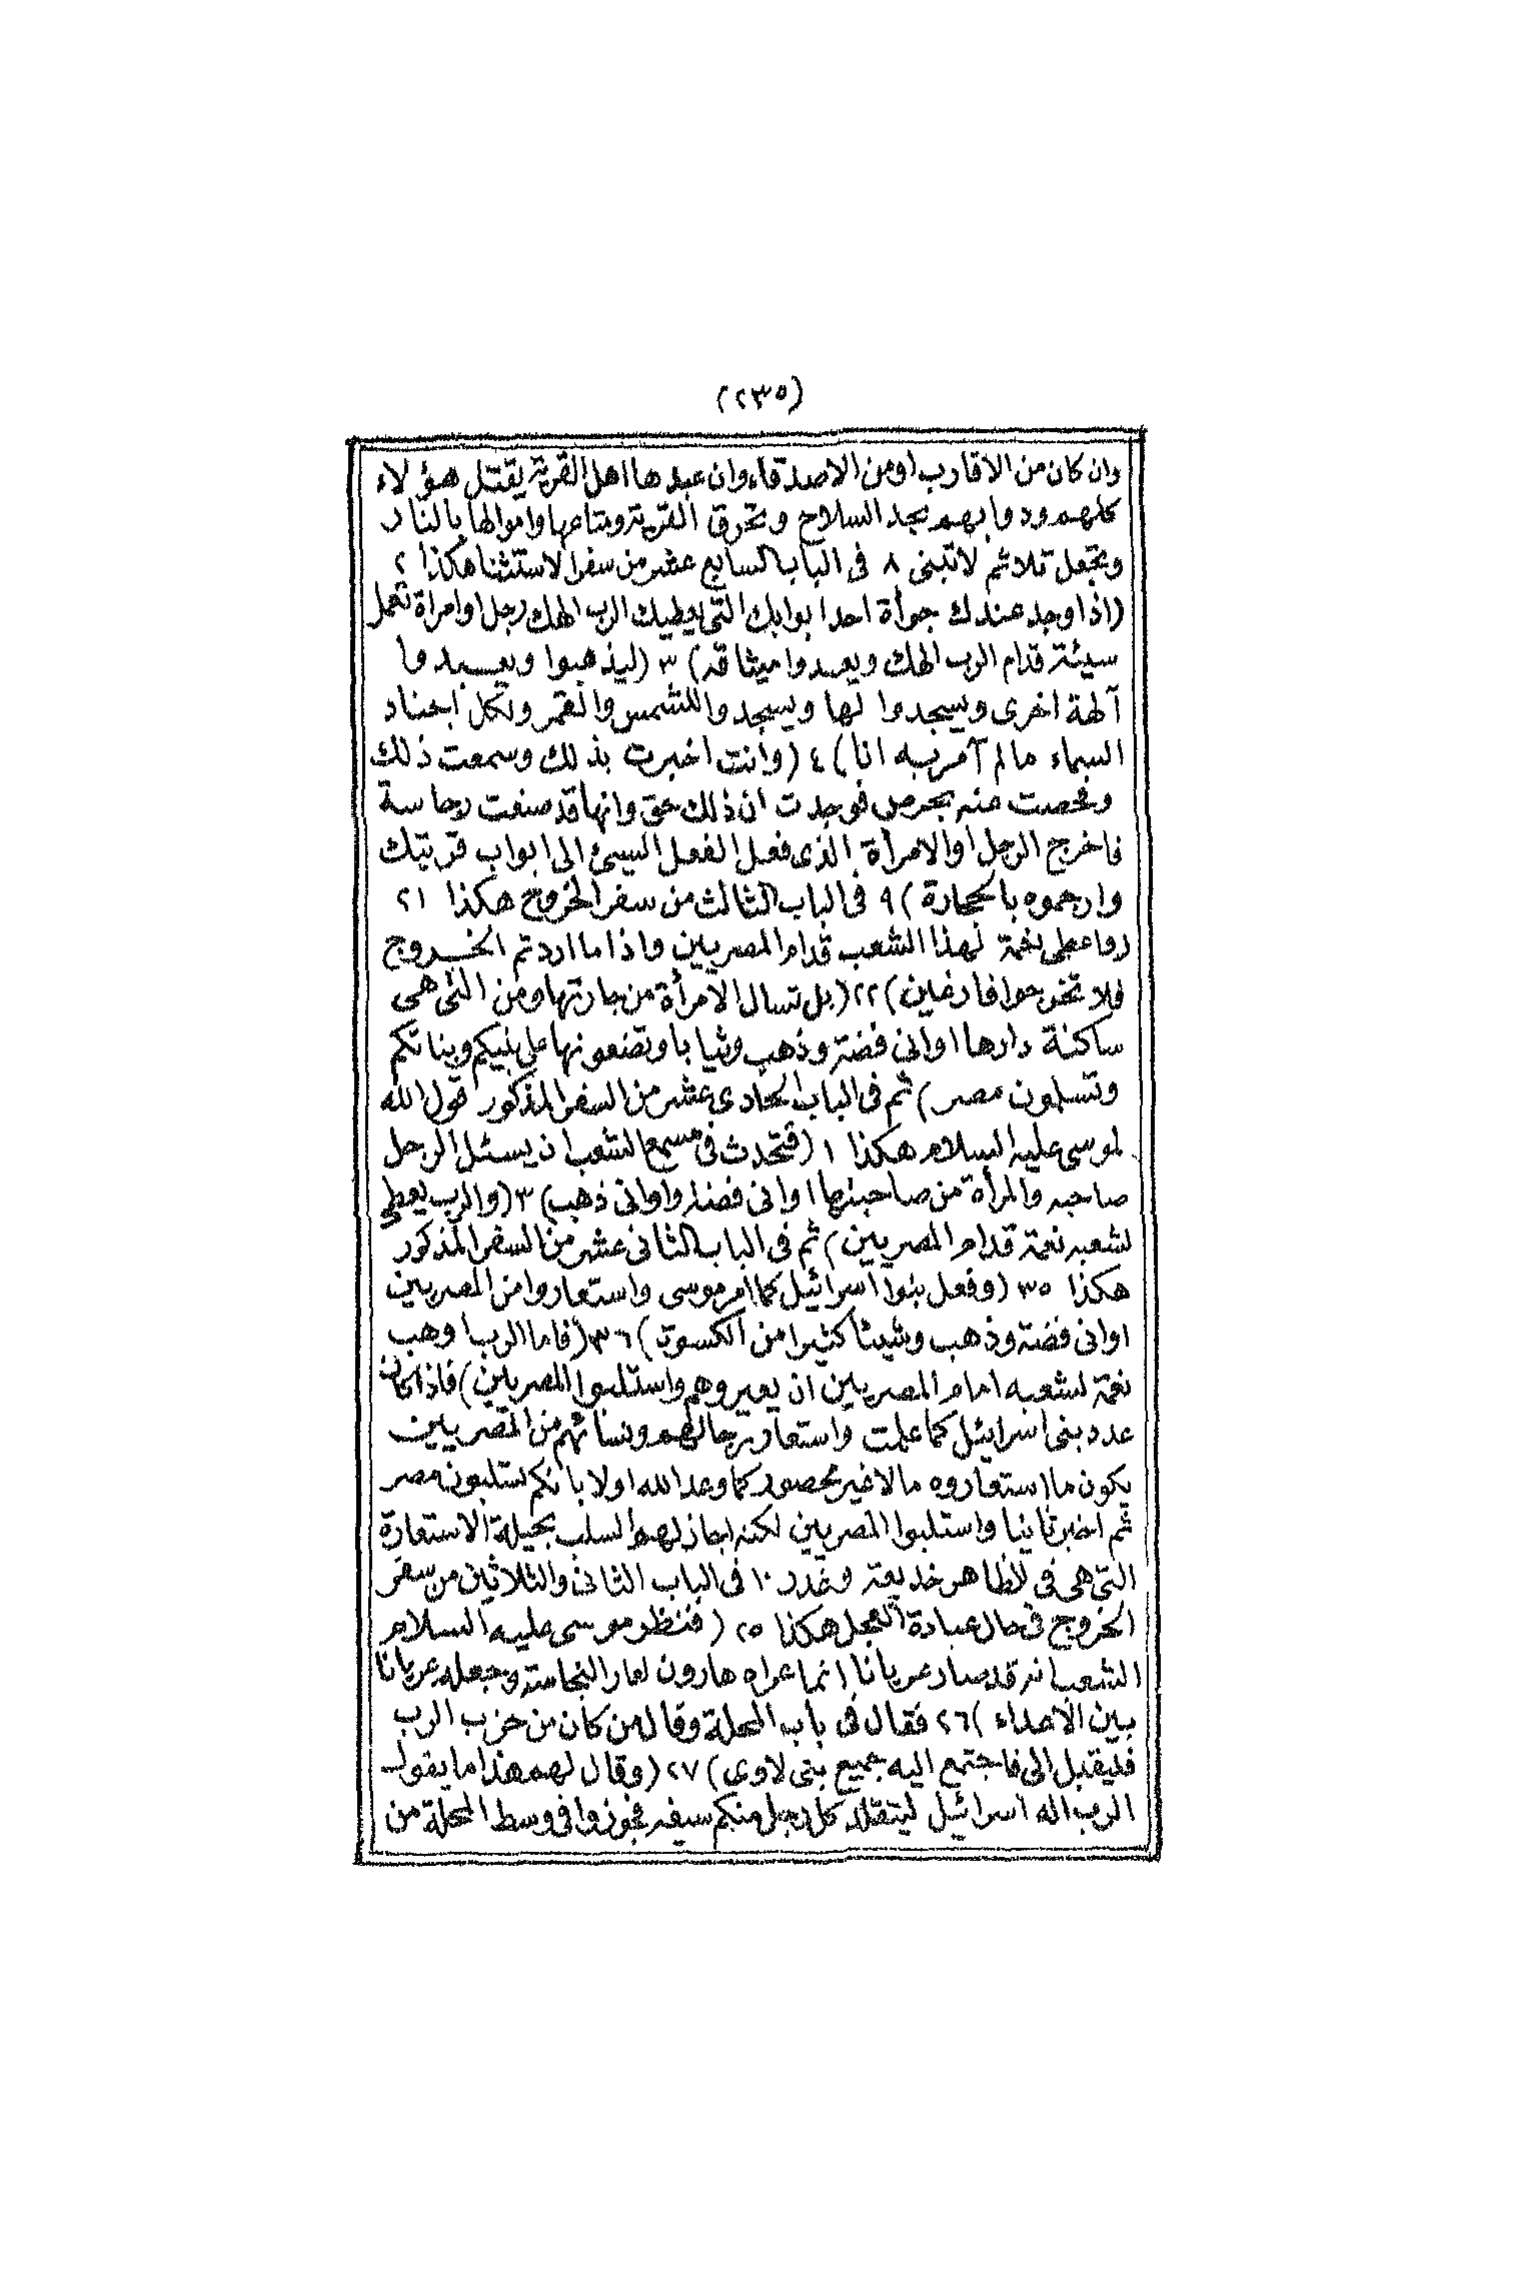 (٢٣٥)
وان كان من الاقارب اومن الاصدقاء وان عبدها اهل القرية يقتل هؤلاء
كلهم ودوابهم بحد السلاح وتحرق القرية ومتاعها واموالها بالنار
وتجعل تلا ثم لا تبنى ٨ فى الباب السابع عشر من سفر الاستثنا هكذا ٢
(اذا وجد عندك جوأة احد ابوابك التى يعطيك الرب الهك رجل او امراة تعمل
سيئة قدام الرب الهك ويعدوا ميثاقه) ٣ (ليذهبوا ويعبدوا
آلهة اخرى ويسجدوا لها ويسجدوا للشمس والقمر ولكل اجناد
السماء مالم آمر به انا) ٤ (وانت اخبرت بذلك وسمعت ذلك
وفحصت عنه بحرص فوجدت ان ذلك حق وانها قد صنعت رجاسة
فاخرج الرجل او الامرأة الذى فعل الفعل السيئ الى ابواب قريتك
وارجموه بالحجارة) ٩ فى الباب الثالث من سفر الخروج هكذا ٢١
(واعطى نعمة لهذا الشعب قدام المصريين واذا ما اردتم الخروج
فلا تخرجوا فارغين) ٢٢ (بل تسال الامرأة من جارتها ومن التى هى
ساكنة دارها اوانى فضة وذهب وثيابا وتضعونها على بنيكم وبناتكم
وتسلبون مصر) ثم فى الباب الحادى عشر من السفر المذكور قول الله
لموسى عليه السلام هكذا ١ (فتحدث فى مسمع الشعب ان يسئل الرجل
صاحبه والمرأة من صاحبتها اوانى فضة واوانى ذهب) ٣ (والرب يعطى
لشعبه نعمة قدام المصريين) ثم فى الباب الثانى عشر من السفر المذكور
هكذا ٣٥ (وفعل بنوا اسرائيل كما امر موسى واستعاروا من المصريين
اوانى فضة وذهب وشيئا كثيرا من الكسوة) ٣٦ (فاما الرب اوهب
نعمة لشعبه امام المصريين ان يعيروهم واستلبوا المصريين) فاذا كان
عدد بنى اسرايئل كما علمت واستعار رجالهم ونسائهم من المصريين
يكون ما استعاروه مالا غير محصور كما وعد الله اولا بانكم تستلبون مصر
ثم اخبر ثانيا واستلبوا المصريين لكنه اجاز لهم السلب بحيلة الاستعارة
التى هى فى الظاهر خديعة وغدر ١٠ فى الباب الثانى والثلاثين من سفر
الخروج فى حال عبادة العجل هكذا ٢٥ (فنظر موسى عليه السلام
الشعب انه قد صار عريانا انما عراه هارون لعار النجاسة وجعله عريانا
بين الاعداء) ٢٦ فقال فى باب المحلة وقال من كان من حزب الرب
فليقبل الى فاجتمع اليه جميع بنى لاوى) ٢٧ (وقال لهم هذا ما يقول
الرب اله اسرائيل ليتقلد كل رجل منكم سيفه فجوزوا فى وسط المحلة من